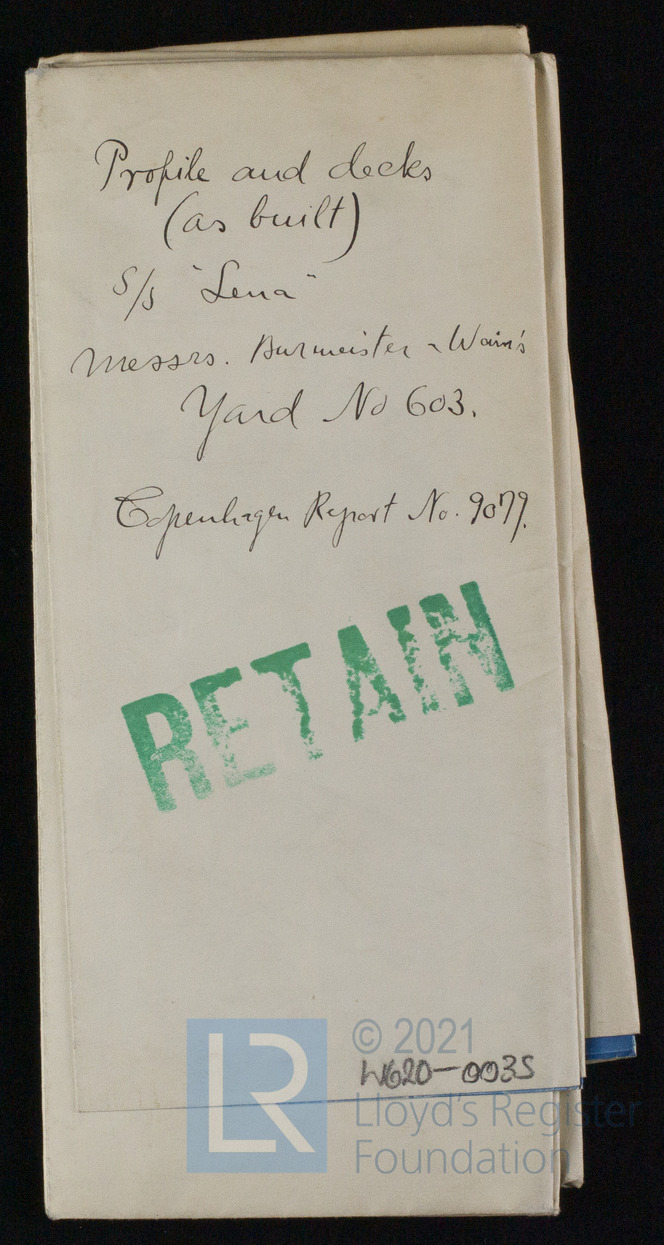 Profile and decks
(as built)
S/S "Lena"
Messrs. Burmeister & Wain's
Yard No 603.
Copenhagen Report No. 9079.
RETAIN
LR
© 2021
W620-0035
Lloyd's Register
Foundation